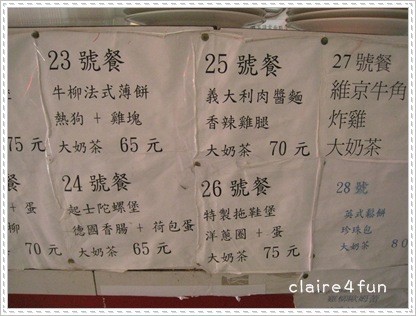 23 號餐
牛柳法式薄餅
熱狗 + 雞塊
大奶茶 65 元
24 號餐
起士陀螺堡
德國香腸 + 荷包蛋
大奶茶 65 元
25 號餐
義大利肉醬麵
香辣雞腿
大奶茶 70 元
26 號餐
特製拖鞋堡
洋蔥圈 + 蛋
大奶茶 75 元
27 號餐
維京牛角
炸雞
大奶茶
28 號
英式鬆餅
珍珠包
大奶茶 80
75 元
+ 蛋
柳
70 元
claire4fun